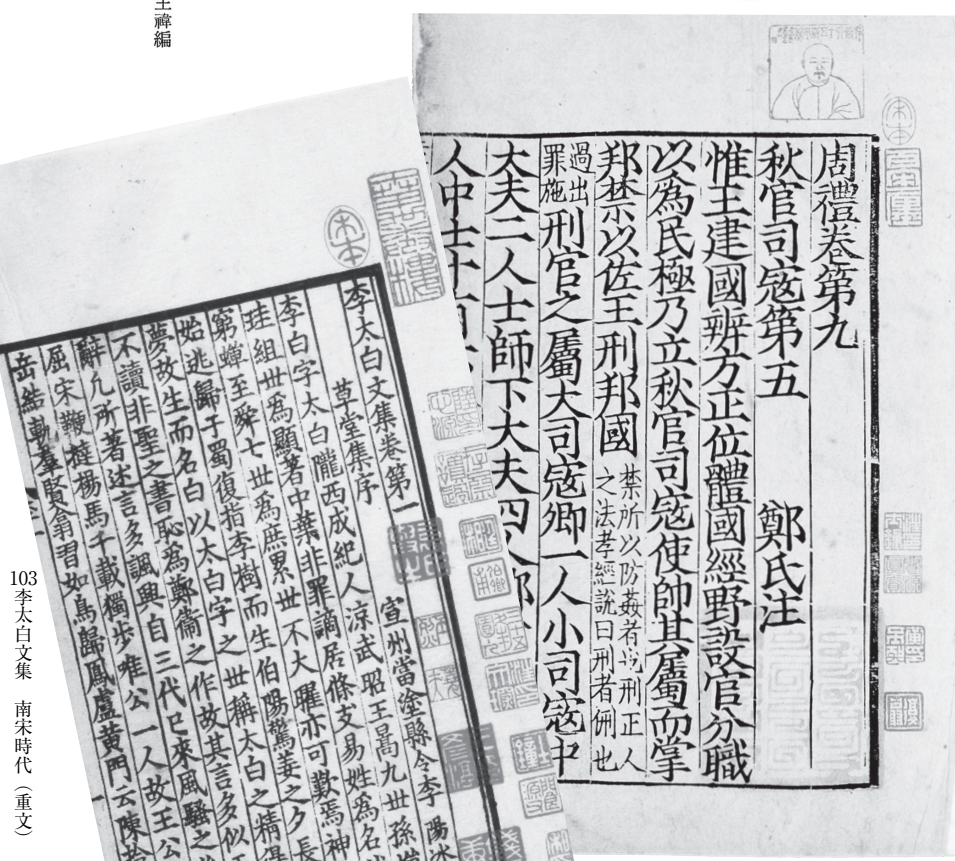 王禕編
周禮卷第九
秋官司寇第五 鄭氏注
惟王建國辨方正位體國經野設官分職
以為民極乃立秋官司寇使帥其屬而掌
邦禁以佐王刑邦國禁所以防姦者也刑正人之法孝經說曰刑者侀也
過出罪施刑官之屬大司寇卿一人小司寇中
大夫二人士師下大夫四人
人中士十
李太白文集卷第一
草堂集序
宣州當塗縣令李陽冰
李白字太白隴西成紀人涼武昭王暠九世孫
珪組世為顯著中葉非罪謫居條支易姓為名
窮蟬至舜七世為庶累世不大曜亦可歎焉神
始逃歸于蜀復指李樹而生伯陽驚姜之夕長
夢故生而名白以太白字之世稱太白之精得
不讀非聖之書恥為鄭衛之作故其言多似
辭凡所著述言多諷興自三代已來風騷之
屈宋鞭撻楊馬千載獨步唯公一人故王公
岳結軌羣賢翕習如鳥歸鳳盧黃門云陳
103李太白文集 南宋時代(重文)